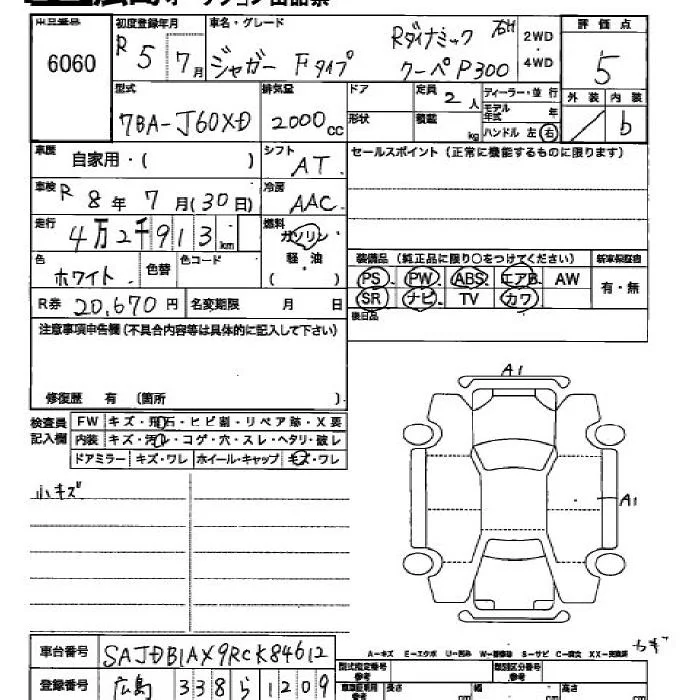 6060
初度登録年月
R 5年 7月
車名・グレード
ジャガー Fタイプ
Rダイナミック
クーペP300
2WD
4WD
評価点
5
外装 内装
b
型式
7BA-J60XD
排気量
2000cc
ドア
形状
定員 2人
積載 kg
ディーラー・並行
モデル年式 年
ハンドル 左 右
車歴 自家用・( )
シフト AT
セールスポイント(正常に機能するものに限ります)
車検 R 8年 7月(30日)
冷房 AAC
走行 4万2千913km
燃料 ガソリン
軽油
( )
色 ホワイト
色替
色コード
装備品(純正品に限り○をつけてください)
新車保証書
PS PW ABS エアB AW
SR ナビ TV カワ
有・無
R券 20,670円
名変期限 月 日
後日品
注意事項申告欄(不具合内容等は具体的に記入して下さい)
修復歴 有 〔箇所 〕
検査員記入欄
FW キズ・飛石・ヒビ割・リペア跡・X要
内装 キズ・汚れ・コゲ・穴・スレ・ヘタリ・破レ
ドアミラー キズ・ワレ ホイール・キャップ キズ・ワレ
小キズ
A1
A1
車台番号 SAJDB1AX9RCK84612
登録番号 広島 338 ら 1209
A-キズ E-エクボ U-凹み W-補修跡 S-サビ C-腐食 XX-交換済
型式指定番号
参考
類別区分番号
参考
長さ cm
幅 cm
高さ cm